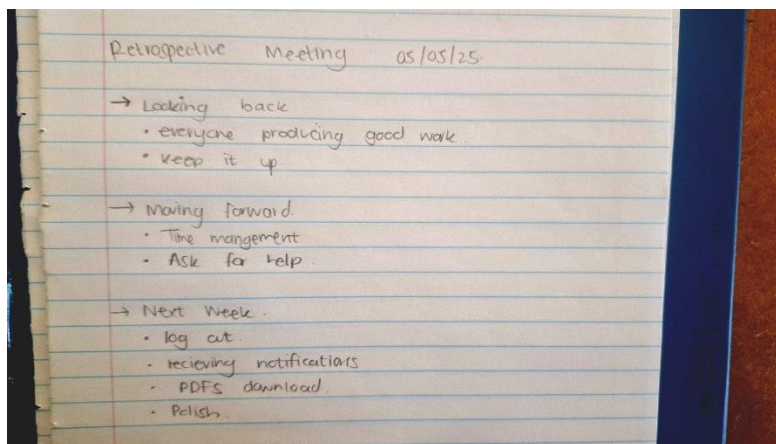 Retrospective Meeting 05/05/25
→ Looking back
• everyone producing good work.
• keep it up.
→ Moving forward.
• Time mangement
• Ask for help
→ Next Week.
• log out
• recieving notifications
• PDFS download.
• Polish.